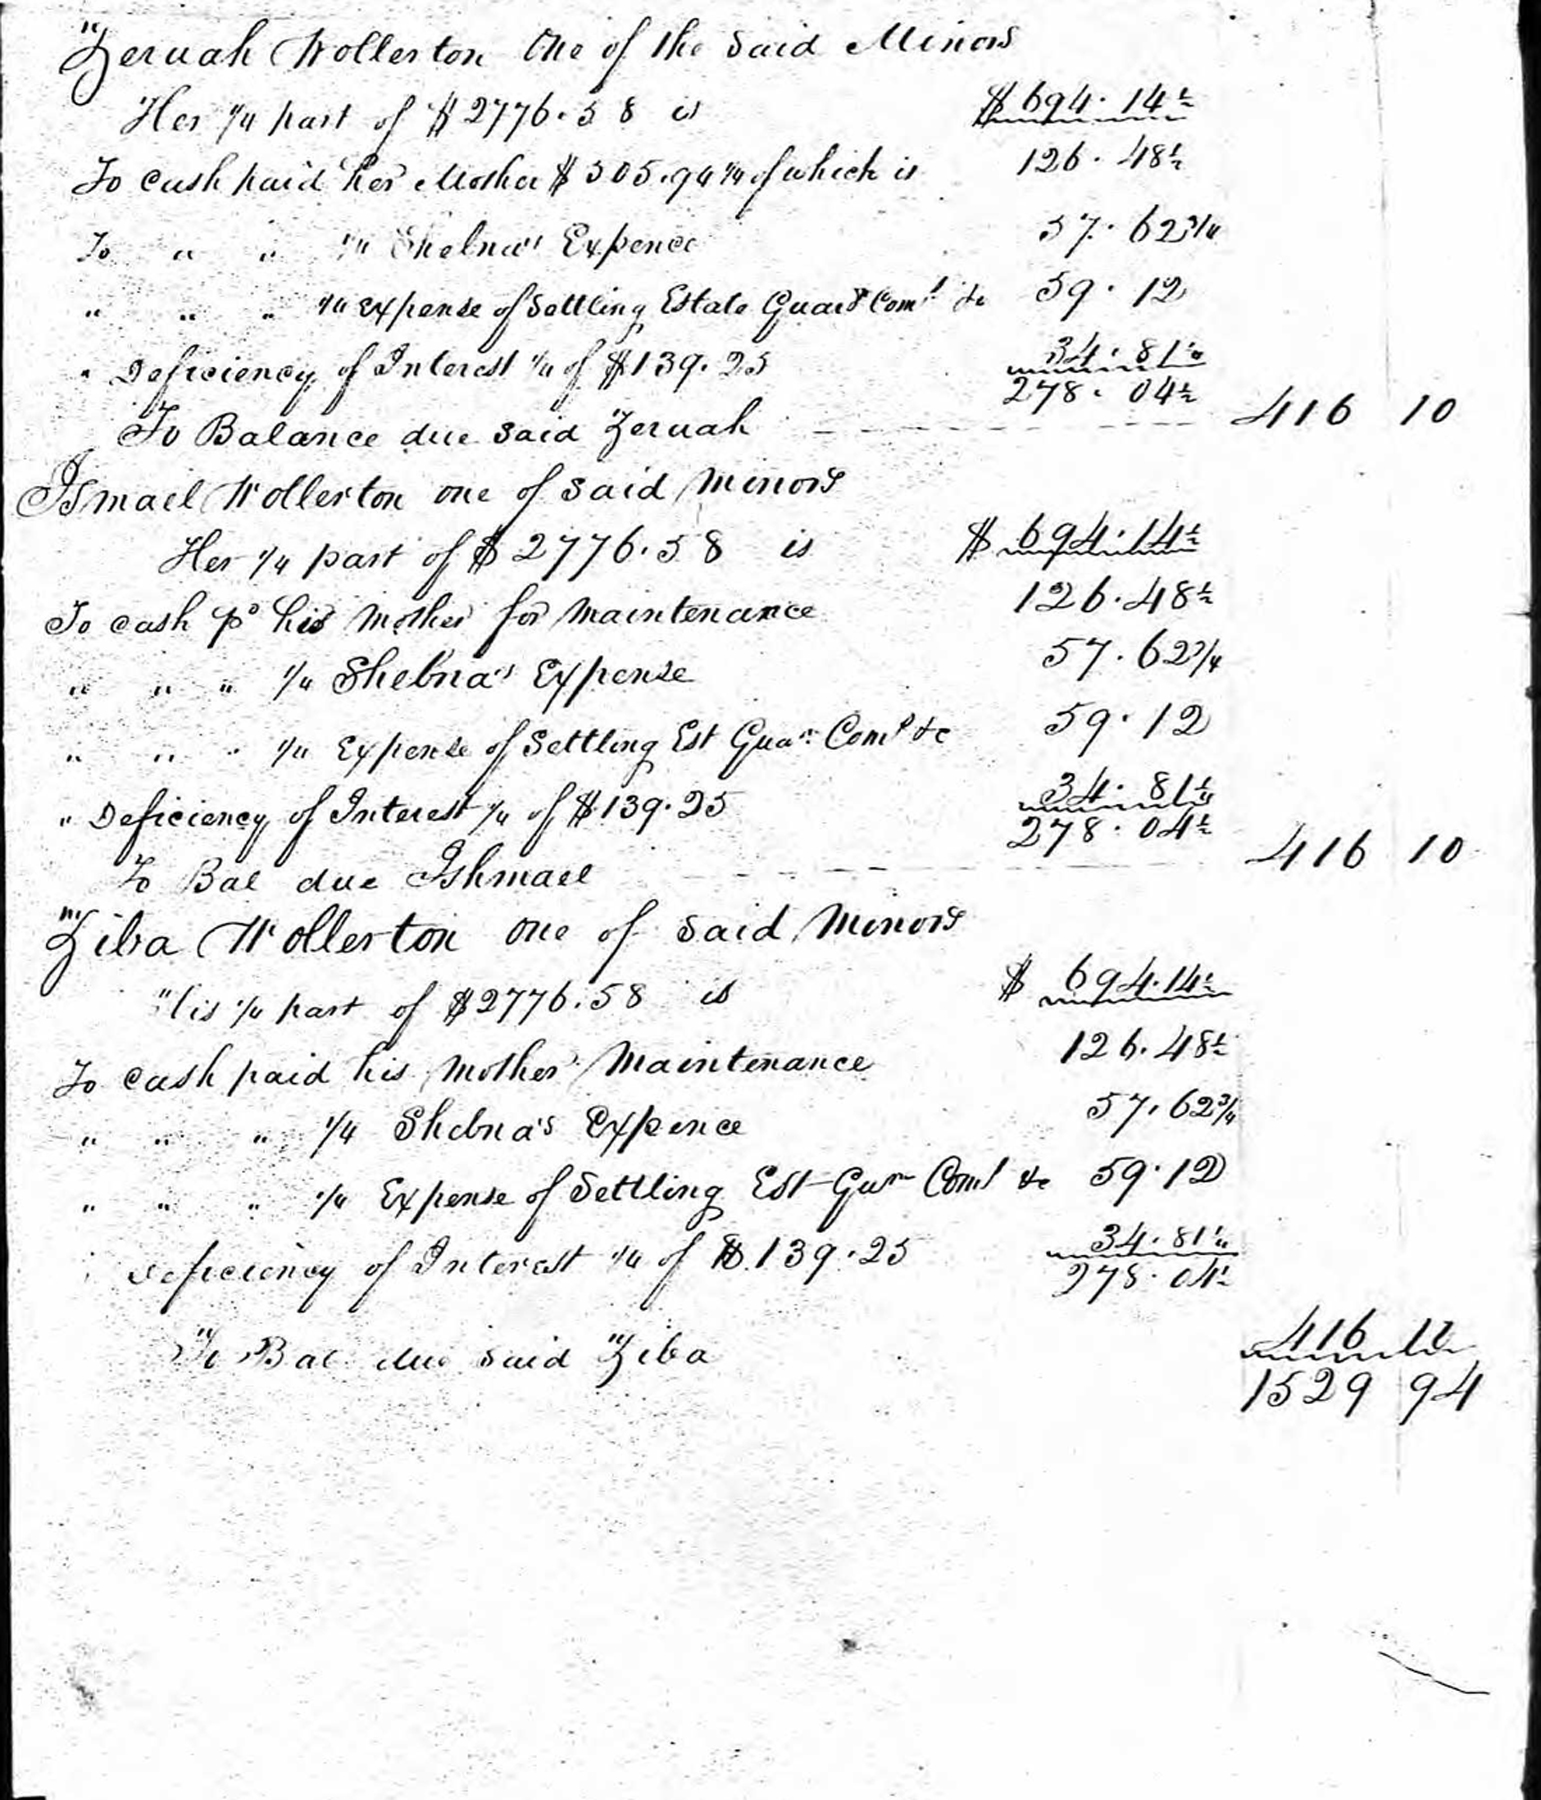 Zeruah Wollerton One of the said Minors
Her 1/4 part of $2776.58 is $694.14½
To cash paid her Mother $505.94 1/4 of which is 126.48½
To " " 1/4 Shebna's Expence 57.62¾
" " " 1/4 Expense of Settling Estate Guard Comˢ &c 59.12
" Deficiency of Interest 1/4 of $139.25 34.81¼
278.04½
To Balance due said Zeruah 416 10
Ismael Wollerton one of said Minors
Her 1/4 part of $2776.58 is $694.14½
To cash pᵈ his Mother for Maintenance 126.48½
" " " 1/4 Shebna's Expense 57.62¾
" " " 1/4 Expense of Settling Est Guaⁿ Comˢ &c 59.12
" Deficiency of Interest 1/4 of $139.25 34.81¼
278.04½
To Bal due Ishmael 416 10
Ziba Wollerton one of said Minors
His 1/4 part of $2776.58 is $694.14½
To cash paid his Mother Maintenance 126.48½
" " " 1/4 Shebna's Expence 57.62¾
" " " 1/4 Expense of Settling Est Guⁿ Comˢ &c 59.12
Deficiency of Interest 1/4 of $139.25 34.81¼
278.04½
To Bal due said Ziba 416
1529 94